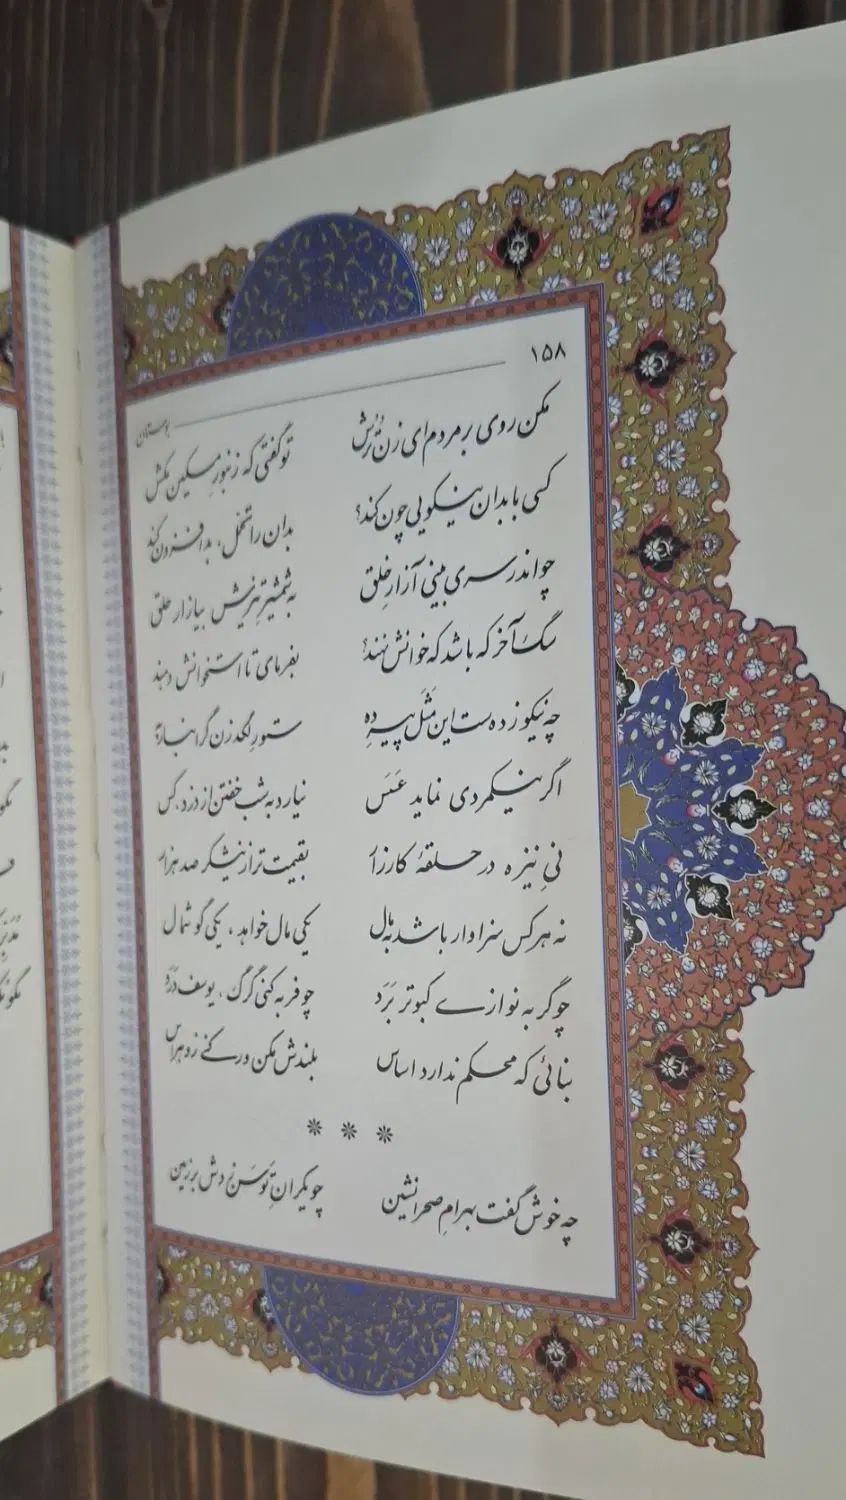 ۱۵۸
بوستان
مکن روی بر مردم ای زن تُرُش تو گفتی که زنبورِ مسکین مکش
کسی با بدان نیکویی چون کند؟ بدان را تحمّل، بد افزون کند
چو اندر سری بینی آزارِ خلق به شمشیرِ تیزش بیازار حلق
سگ آخر که باشد که خوانش نهند؟ بفرمای تا استخوانش دهند
چه نیکو زده‌ست این مَثَل پیرِ دِه ستورِ لگدزن گرانبار به
اگر نیکمردی نماید عَسَس نیارد به شب خفتن از دزد، کس
نیِ نیزه در حلقهٔ کارزار بقیمت‌تر از نیشکر صد هزار
نه هر کس سزاوار باشد به مال یکی مال خواهد، یکی گوشمال
چو گربه نوازی کبوتر بَرَد چو فربه کنی گرگ، یوسف دَرَد
بنائی که محکم ندارد اساس بلندش مکن ور کنی زو هراس
چه خوش گفت بهرامِ صحرانشین چو یکرانِ تَوسَن زدش بر زمین